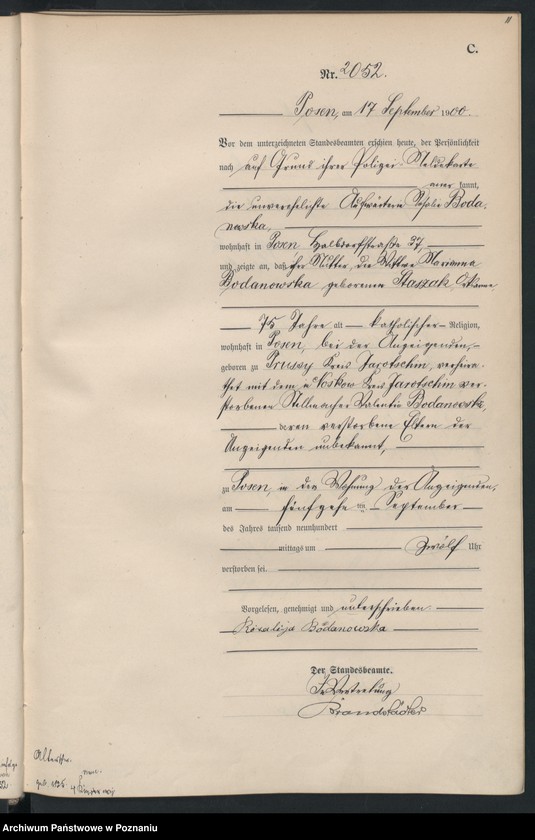 11
C.
Nr. 2052.
Posen, am 17 September 1900.
Vor dem unterzeichneten Standesbeamten erschien heute, der Persönlichkeit
nach auf Grund ihrer Polizei-Meldekarte
aner kannt,
die unverehelichte Aufwärterin Boda
nowska,
wohnhaft in Posen Halbdorfstraße 37,
und zeigte an, daß ihre Mutter, die Wittwe Marianna
Bodanowska geborenen Staszak,
75 Jahre alt katholischer Religion,
wohnhaft in Posen, bei der Anzeigenden,
geboren zu Prussy Kreis Jarotschin, verheira
thet mit dem in Noskow Kreis Jarotschin ver-
storbenen Stellmacher Valentin Bodanowski,
deren verstorbene Eltern der
Anzeigenden unbekannt,
zu Posen, in der Wohnung der Anzeigenden,
am fünfzehn ten September
des Jahres tausend neunhundert
mittags um zwölf Uhr
verstorben sei.
Vorgelesen, genehmigt und unterschrieben
Rozalija Bodanowska
Der Standesbeamte.
In Vertretung
Brandstädter
Archiwum Państwowe w Poznaniu